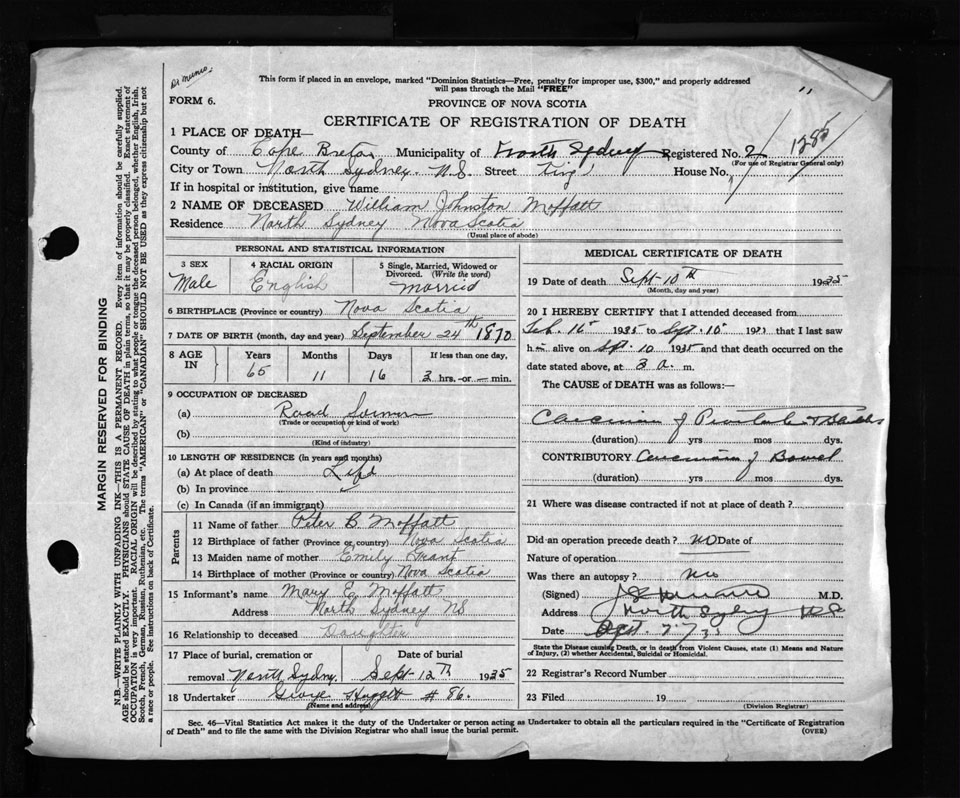 Dr Munro
This form if placed in an envelope, marked "Dominion Statistics—Free, penalty for improper use, $300," and properly addressed
will pass through the Mail "FREE"
FORM 6.
PROVINCE OF NOVA SCOTIA
CERTIFICATE OF REGISTRATION OF DEATH
1285
1 PLACE OF DEATH—
County of Cape Breton Municipality of North Sydney Registered No. 2
(For use of Registrar General only)
City or Town North Sydney. N.S. Street House No.
If in hospital or institution, give name
2 NAME OF DECEASED William Johnston Moffatt
Residence North Sydney Nova Scotia
(Usual place of abode)
PERSONAL AND STATISTICAL INFORMATION
3 SEX 4 RACIAL ORIGIN 5 Single, Married, Widowed or
Divorced. (Write the word)
Male English Married
6 BIRTHPLACE (Province or country) Nova Scotia
7 DATE OF BIRTH (month, day and year) September 24th 1870
8 AGE IN Years Months Days If less than one day,
65 11 16 3 hrs.-or — min.
9 OCCUPATION OF DECEASED
(a) Road
(Trade or occupation or kind of work)
(b)
(Kind of industry)
10 LENGTH OF RESIDENCE (in years and months)
(a) At place of death Life
(b) In province
(c) In Canada (if an immigrant)
Parents
11 Name of father Peter B Moffatt
12 Birthplace of father (Province or country) Nova Scotia
13 Maiden name of mother Emily Grant
14 Birthplace of mother (Province or country) Nova Scotia
15 Informant's name Mary E. Moffatt
Address North Sydney NS
16 Relationship to deceased Daughter
17 Place of burial, cremation or Date of burial
removal North Sydney Sept-12th 1935
18 Undertaker George Huggett # 86.
(Name and address)
MEDICAL CERTIFICATE OF DEATH
19 Date of death Sept-10th 1935
(Month, day and year)
20 I HEREBY CERTIFY that I attended deceased from
Feb. 16 1935 to Sept. 10 193 that I last saw
h alive on Spt. 10 1935 and that death occurred on the
date stated above, at 3 a. m.
The CAUSE of DEATH was as follows:
of
(duration) yrs mos dys.
CONTRIBUTORY of Bowel
(duration) yrs mos dys.
21 Where was disease contracted if not at place of death?
Did an operation precede death? NO Date of
Nature of operation
Was there an autopsy? no
(Signed) M.D.
Address North Sydney N.S.
Date
State the Disease causing Death, or in death from Violent Causes, state (1) Means and Nature
of Injury, (2) whether Accidental, Suicidal or Homicidal.
22 Registrar's Record Number
23 Filed 19
(Division Registrar)
Sec. 46—Vital Statistics Act makes it the duty of the Undertaker or person acting as Undertaker to obtain all the particulars required in the "Certificate of Registration
of Death" and to file the same with the Division Registrar who shall issue the burial permit. (OVER)
MARGIN RESERVED FOR BINDING
N.B.—WRITE PLAINLY WITH UNFADING INK—THIS IS A PERMANENT RECORD. Every item of information should be carefully supplied.
AGE should be stated EXACTLY. PHYSICIANS should STATE CAUSE OF DEATH in plain terms, so that it may be properly classified. Exact statement of
OCCUPATION is very important. RACIAL ORIGIN will be described by stating to what people or tongue the deceased person belonged, whether English, Irish,
Scotch, French, German, Russian, Ruthenian, etc. The terms "AMERICAN" or "CANADIAN" SHOULD NOT BE USED as they express citizenship but not
a race or people. See instructions on back of Certificate.